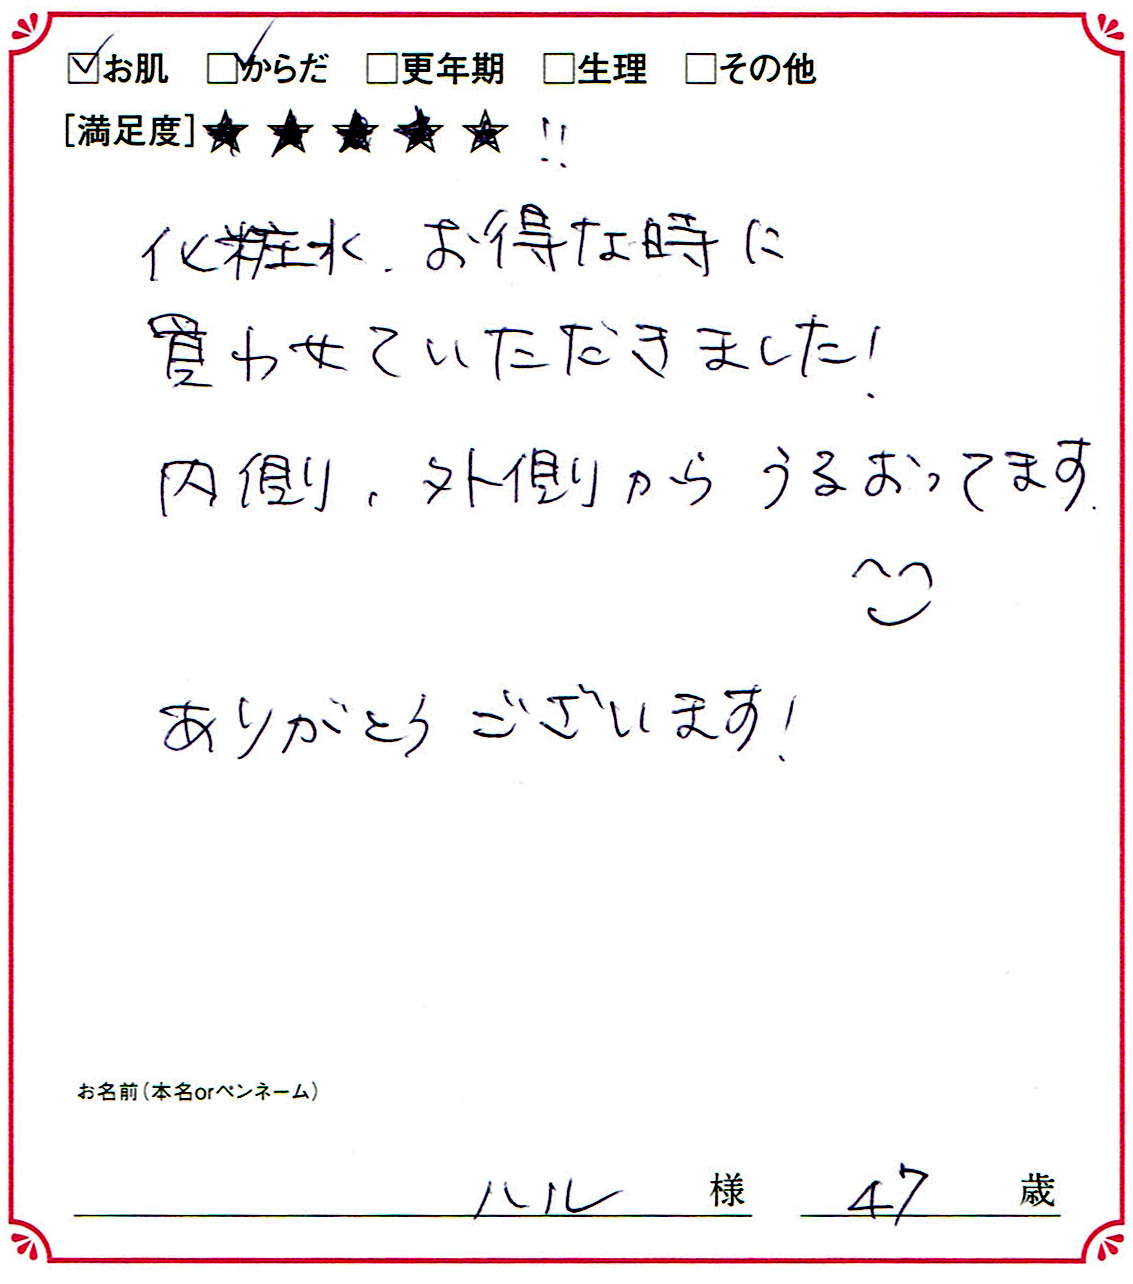 ☑お肌 ☑からだ □更年期 □生理 □その他
[満足度]★★★★★!!
化粧水、お得な時に
買わせていただきました!
内側、外側からうるおってます。
ありがとうございます!
お名前(本名orペンネーム)
ハル 様 47 歳